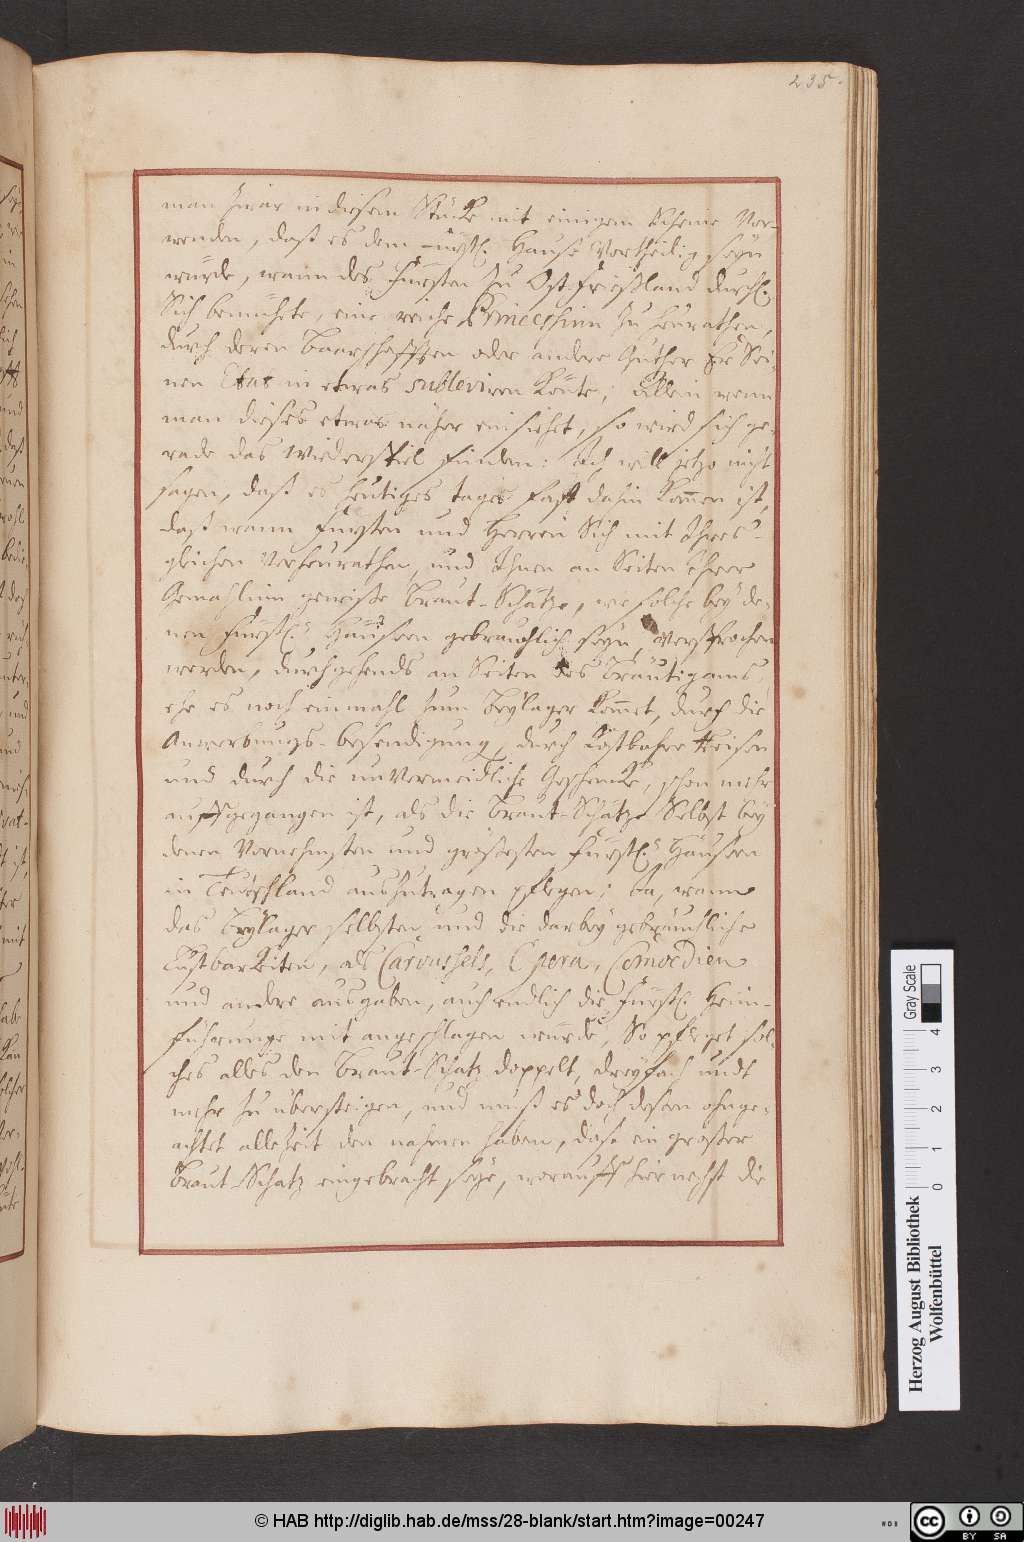 235.
man zwar in diesem Stücke mit einigem Scheine Vor-
wenden, daß es dem Fürstl. Hause Vortheilig seyn
würde, wann des Fürsten zu Ost-Frießland durchl.
Sich bemühete, eine reiche Princeshinn zu heurathen,
durch deren Baarschafften oder andere Güther Er Sei-
nen Etat in etwas subleviren könte; Allein wenn
man dieses etwas näher einsiehet, so wird sich ge-
rade das Wiederspiel finden: Ich will jetzo nicht
sagen, daß es heutiges tages fast dahin kommen ist,
daß wann Fürsten und Herren Sich mit Ihres-
gleichen Verheurathen, und Ihnen an Seiten Ihrer
Gemahlinn gewisse Braut-Schätze, wie solche bey de-
nen Fürstl. Häusern gebräuchlich seyn, versprochen
werden, durchgehends an Seiten des Bräutigams,
ehe es noch einmahl zum Beylager kommet, durch die
Anwerbungs-besendigung, durch kostbahre Reisen
und durch die unvermeidliche Geschencke, schon mehr
auffgegangen ist, als die Braut-Schätze Selbst bey
denen Vornehmsten und größesten Fürstl. Häusern
in Teutschland auszutragen pflegen; Ja, wann
das Beylager selbsten und die darbey gebräuchliche
Lustbarkeiten, als Caroussels, Opera, Comoedien
und andere ausgaben, auch endlich die Fürstl. Heim-
führunge mit angeschlagen würde, So pfleget sol-
ches alles den Braut-Schatz doppelt, dreyfach undt
mehr zu übersteigen, und muß es doch dessen ohnge-
achtet allezeit den nahmen haben, daß ein großer
Braut-Schatz eingebracht seye, worauff hiernechst die
Herzog August Bibliothek
Wolfenbüttel
Gray Scale
0 1 2 3 4
© HAB http://diglib.hab.de/mss/28-blank/start.htm?image=00247
cc BY SA